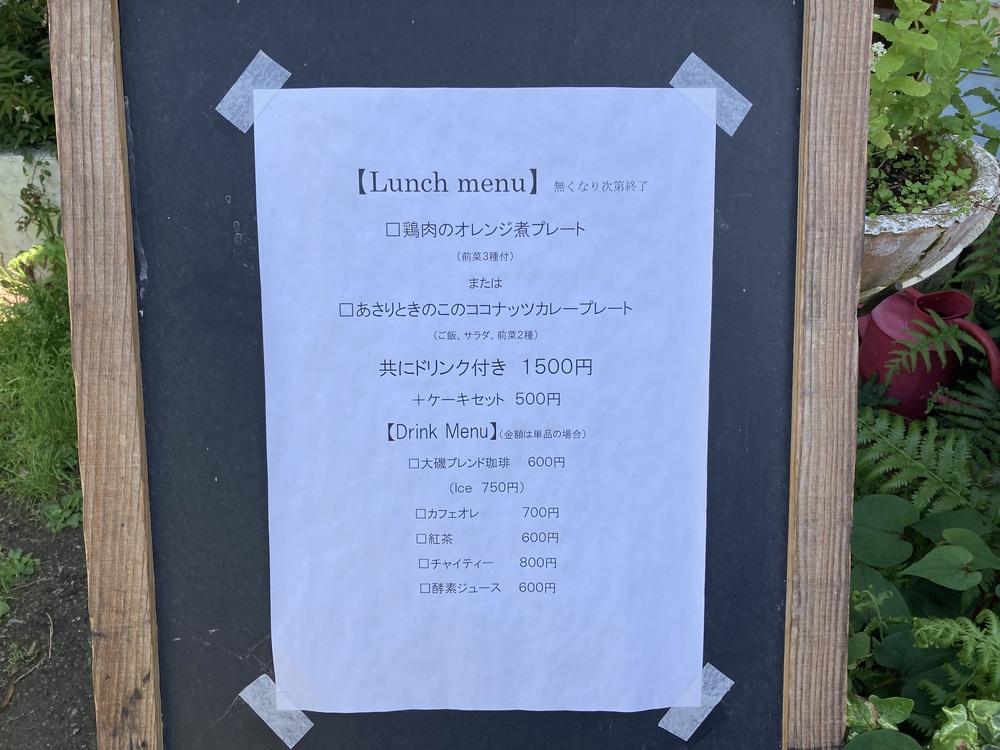 【Lunch menu】 無くなり次第終了
□鶏肉のオレンジ煮プレート
（前菜3種付）
または
□あさりときのこのココナッツカレープレート
（ご飯、サラダ、前菜2種）
共にドリンク付き 1500円
＋ケーキセット 500円
【Drink Menu】（金額は単品の場合）
□大磯ブレンド珈琲 600円
（Ice 750円）
□カフェオレ 700円
□紅茶 600円
□チャイティー 800円
□酵素ジュース 600円